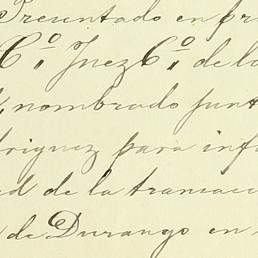 Presentado en pr
Cº Juez Cº de la
nombrado junt
driguez para inf
ed de la transacc
de Durango en